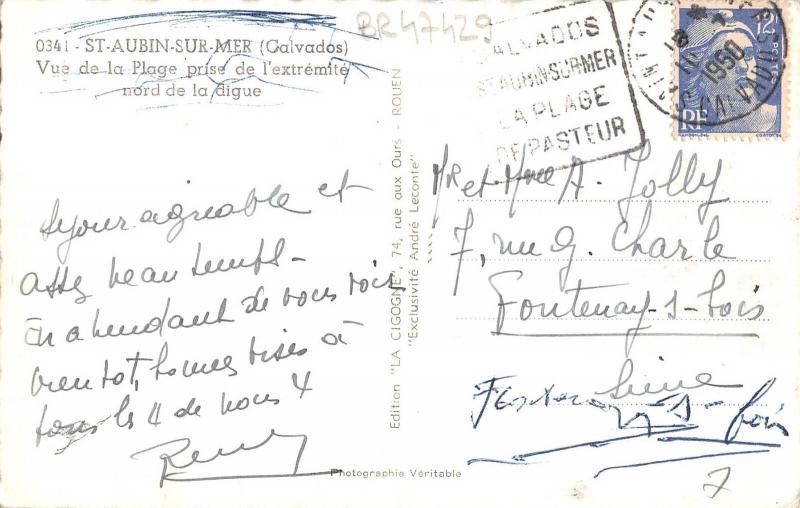 BR47429
0341 - ST-AUBIN-SUR-MER (Calvados)
Vue de la Plage prise de l'extrémité
nord de la digue
CALVADOS
ST AUBIN-SUR-MER
LA PLAGE
DE PASTEUR
1950
12
RF
Séjour agréable et
assez beau temps -
En attendant de vous voir
bientôt, bonnes bises à
tous les 4 de nous 4
Remy
Edition "LA CIGOGNE", 74, rue aux Ours - ROUEN
"Exclusivité André Leconte"
Mr et Mme A. Jolly
7, rue G. Charle
Fontenay-s-bois
Seine
Fontenay s-bois
7
Photographie Véritable